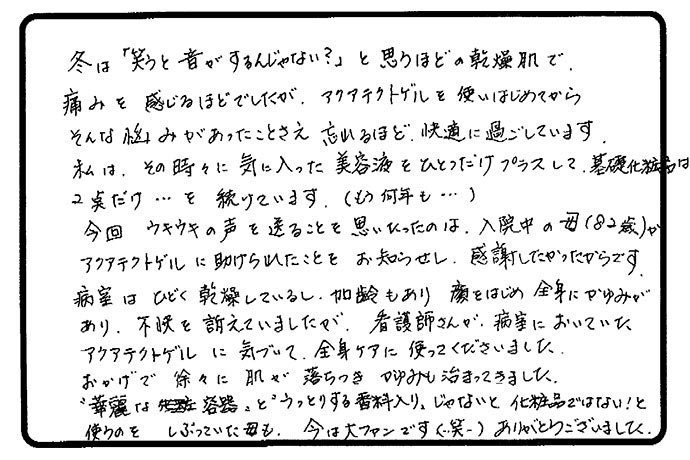 冬は「笑うと音がするんじゃない?」と思うほどの乾燥肌で、
痛みを感じるほどでしたが、アクアテクトゲルを使いはじめてから
そんな悩みがあったことさえ忘れるほど、快適に過ごしています。
私は、その時々に気に入った美容液をひとつだけプラスして、基礎化粧品は
2点だけ…を続けています。(もう何年も…)
今回ウキウキの声を送ることを思いたったのは、入院中の母(82歳)が
アクアテクトゲルに助けられたことをお知らせし、感謝したかったからです。
病室はひどく乾燥しているし、加齢もあり顔をはじめ全身にかゆみが
あり、不快を訴えていましたが、看護師さんが、病室においていた
アクアテクトゲルに気づいて、全身ケアに使ってくださいました。
おかげで徐々に肌が落ちつきかゆみも治まってきました。
"華麗な容器"と"うっとりする香料入り"じゃないと化粧品ではない!と
使うのをしぶっていた母も、今は大ファンです(-笑-)ありがとうございました。